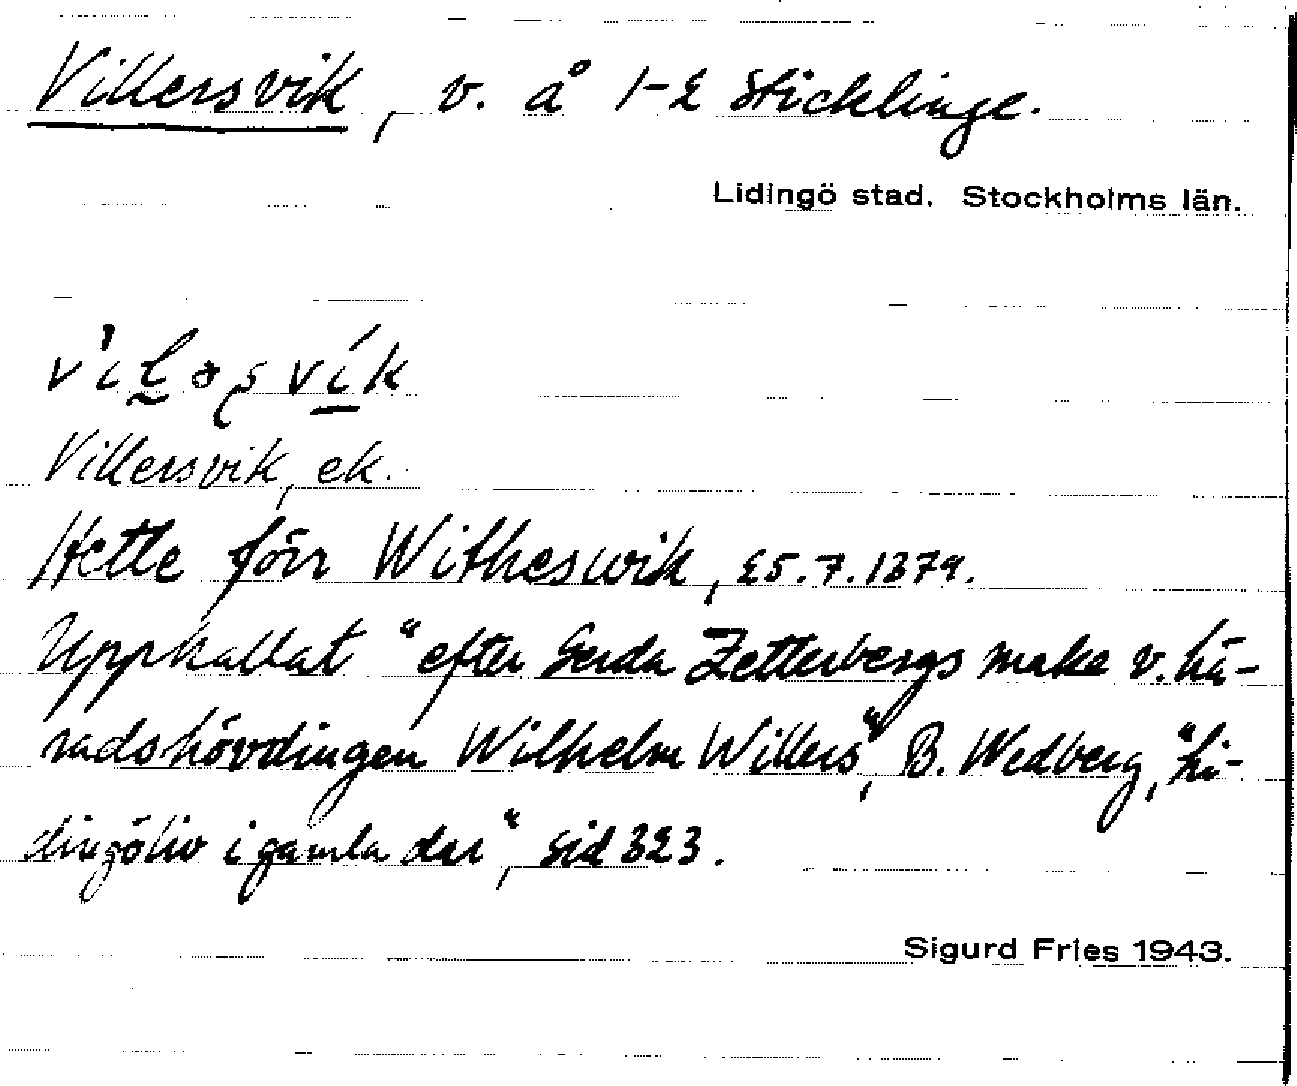 Villersvik, v. å 1-2 Sticklinge.
Lidingö stad. Stockholms län.
Villersvik, ek.
Hette förr Witheswik, 25.7.1879.
Uppkallat "efter Gerda Zetterbergs make v. hä-
radshövdingen Wilhelm Willers", B. Wedberg, "Li-
dingöliv i gamla dar", sid 323.
Sigurd Fries 1943.